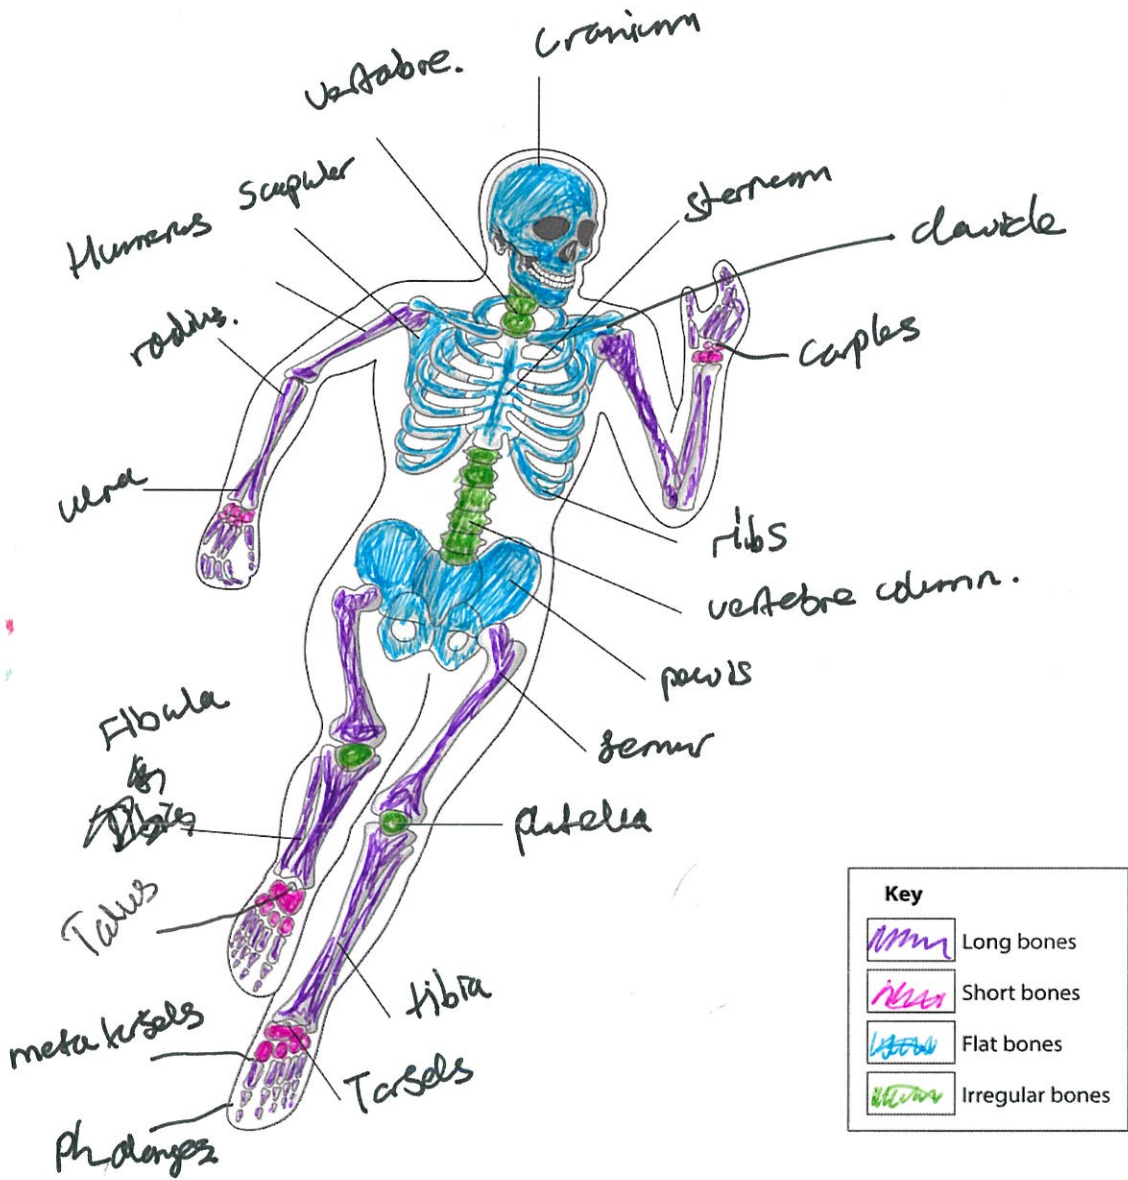 cranium
vertabre.
scapuler
sternum
Humerus
clavicle
radius.
carples
ulna
ribs
vertebre column.
pelvis
Fibula
femur
platella
Talus
tibia
metatarsels
Tarsels
Phalanges
Key
Long bones
Short bones
Flat bones
Irregular bones